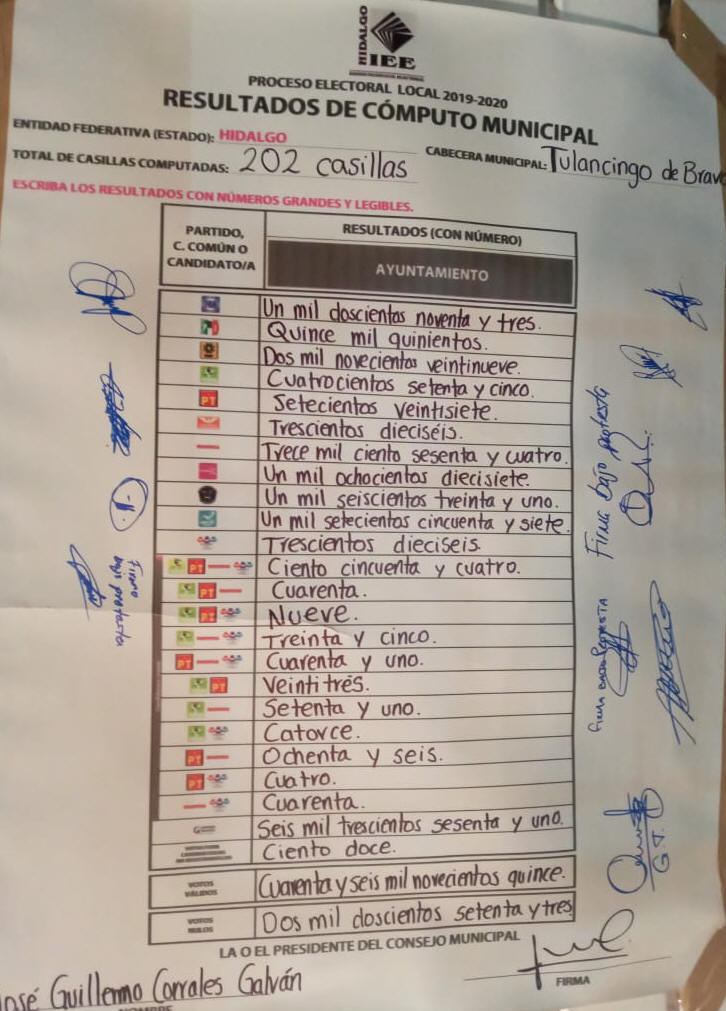 HIDALGO
IEE
PROCESO ELECTORAL LOCAL 2019-2020
RESULTADOS DE CÓMPUTO MUNICIPAL
ENTIDAD FEDERATIVA (ESTADO): HIDALGO
TOTAL DE CASILLAS COMPUTADAS: 202 casillas
CABECERA MUNICIPAL: Tulancingo de Bravo
ESCRIBA LOS RESULTADOS CON NÚMEROS GRANDES Y LEGIBLES.
PARTIDO, C. COMÚN O CANDIDATO/A
RESULTADOS (CON NÚMERO)
AYUNTAMIENTO
Un mil doscientos noventa y tres.
Quince mil quinientos.
Dos mil novecientos veintinueve.
Cuatrocientos setenta y cinco.
PT Setecientos veintisiete.
Trescientos dieciséis.
Trece mil ciento sesenta y cuatro.
Un mil ochocientos diecisiete.
Un mil seiscientos treinta y uno.
Un mil setecientos cincuenta y siete.
Trescientos dieciseis.
PT Ciento cincuenta y cuatro.
PT Cuarenta.
PT Nueve.
Treinta y cinco.
PT Cuarenta y uno.
PT Veintitrés.
Setenta y uno.
Catorce.
PT Ochenta y seis.
PT Cuatro.
Cuarenta.
Seis mil trescientos sesenta y uno.
Ciento doce.
VOTOS VÁLIDOS Cuarenta y seis mil novecientos quince.
VOTOS NULOS Dos mil doscientos setenta y tres
LA O EL PRESIDENTE DEL CONSEJO MUNICIPAL
José Guillermo Corrales Galván
NOMBRE
FIRMA
Firmo bajo protesta
Firma bajo protesta
FIRMA BAJO PROTESTA
G.T.